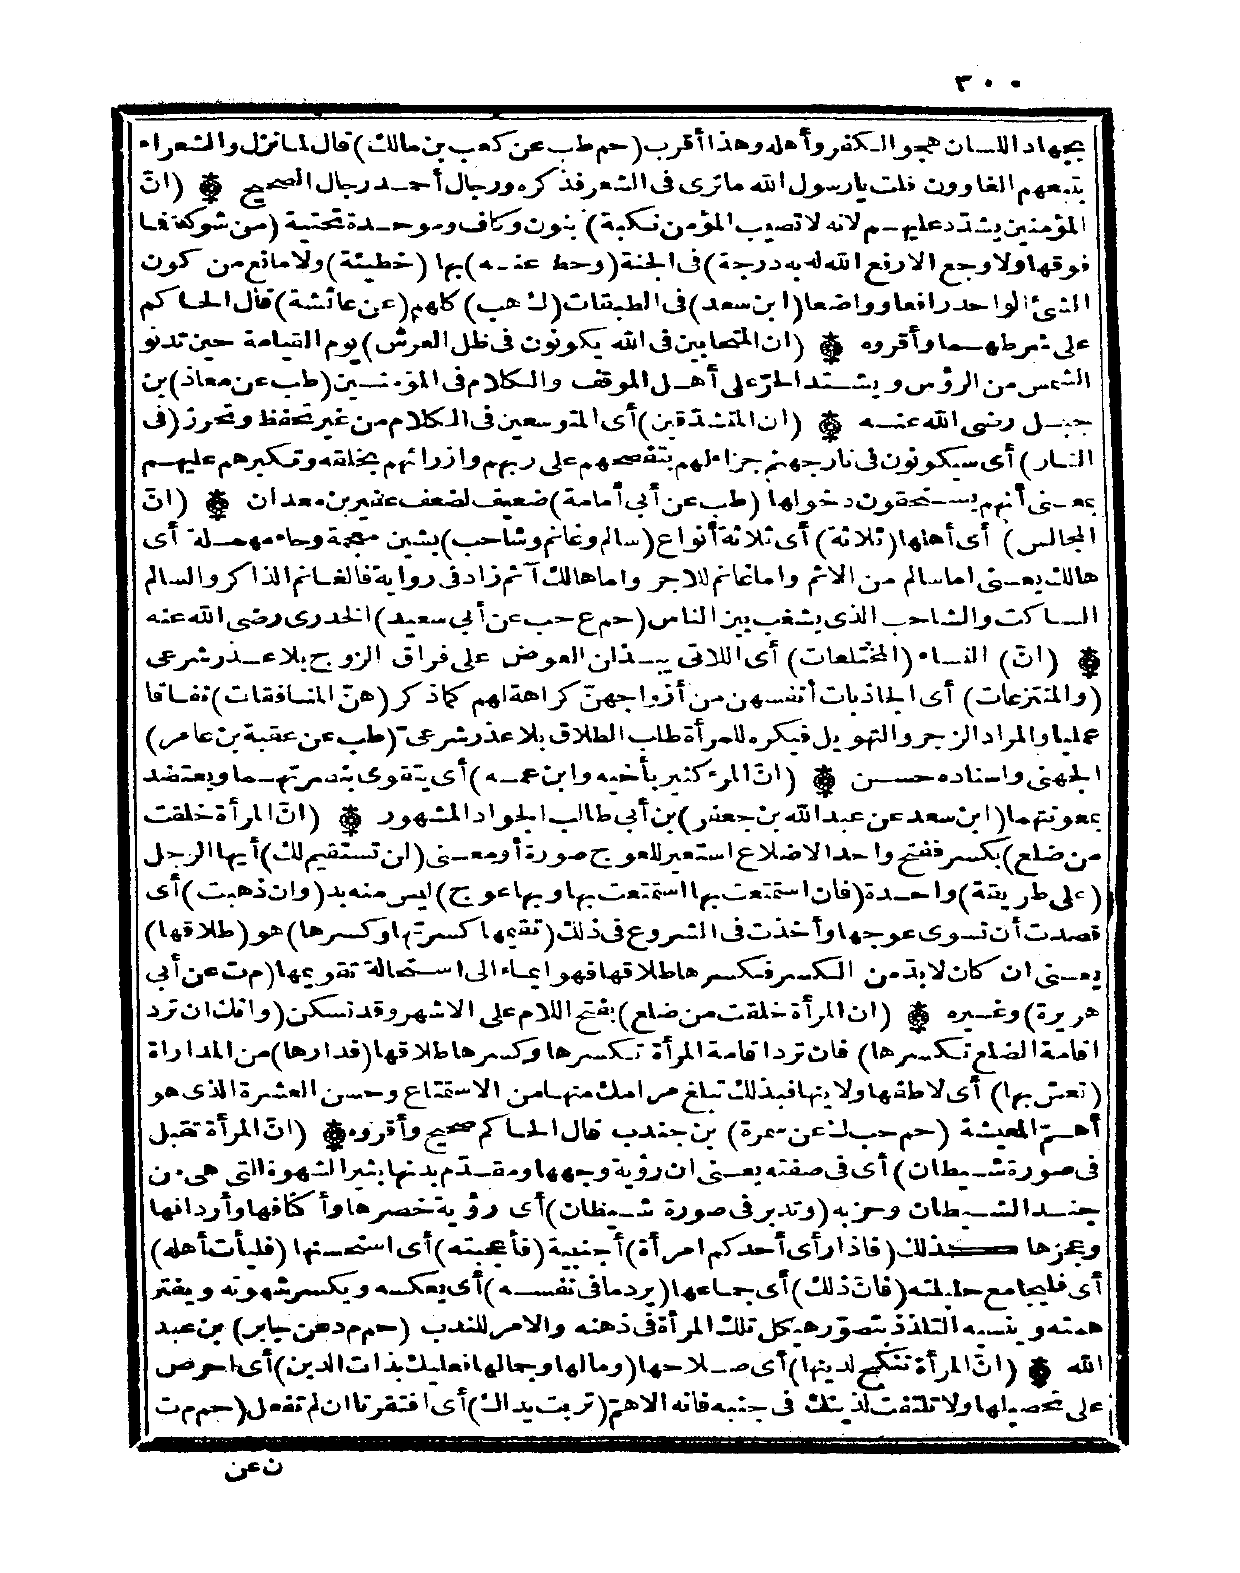 ٣٠٠
بجهاد اللسان هجو الكفر وأهله وهذا أقرب (حم طب عن كعب بن مالك) قال لما نزل والشعراء
يتبعهم الغاوون قلت يا رسول الله ما ترى فى الشعر فذكره ورجال أحمد رجال الصحيح ۞ (انّ
المؤمنين يشدد عليهم لانه لا تصيب المؤمن نكبة) بنون وكاف وموحدة تحتية (من شوكة فا
فوقها ولا وجع الا رفع الله له به درجة) فى الجنة (وحط عنه) بها (خطيئة) ولا مانع من كون
الشئ الواحد رافعا وواضعا (ابن سعد) فى الطبقات (ك هب) كلهم (عن عائشة) قال الحاكم
على شرطهما وأقروه ۞ (ان المتحابين فى الله يكونون فى ظل العرش) يوم القيامة حين تدنو
الشمس من الرؤس ويشتد الحرّ على أهل الموقف والكلام فى المؤمنين (طب عن معاذ) بن
جبل رضى الله عنه ۞ (ان المتشدقين) أى المتوسعين فى الكلام من غير تحفظ وتحرز (فى
النار) أى سيكونون فى نار جهنم جزاء لهم بتفصحهم على ربهم وازرائهم بخلقه وتكبرهم عليهم
بمعنى أنهم يستحقون دخولها (طب عن أبى أمامة) ضعيف لضعف عفير بن معدان ۞ (انّ
المجالس) أى أهلها (ثلاثة) أى ثلاثة أنواع (سالم وغانم وشاحب) بشين معجمة وحاء مهملة أى
هالك يعنى اما سالم من الاثم واما غانم للاجر واما هالك آثم زاد فى رواية فالغانم الذاكر والسالم
الساكت والشاحب الذى يشغب بين الناس (حم ع حب عن أبى سعيد) الخدرى رضى الله عنه
۞ (انّ) النساء (المختلعات) أى اللاتى يبذلن العوض على فراق الزوج بلا عذر شرعى
(والمنتزعات) أى الجاذبات أنفسهن من أزواجهنّ كراهة لهم كما ذكر (هنّ المنافقات) نفاقا
عمليا والمراد الزجر والتهويل فيكره للمرأة طلب الطلاق بلا عذر شرعى (طب عن عقبة بن عامر)
الجهنى واسناده حسن ۞ (انّ المرء كثير بأخيه وابن عمه) أى يتقوى بنصرتهما ويعتضد
بمعونتهما (ابن سعد عن عبد الله بن جعفر) بن أبى طالب الجواد المشهور ۞ (انّ المرأة خلقت
من ضلع) بكسر ففتح واحد الاضلاع استعير للعوج صورة أو معنى (لن تستقيم لك) أيها الرجل
(على طريقة) واحدة (فان استمتعت بها استمتعت بها وبها عوج) ليس منه بد (وان ذهبت) أى
قصدت أن تسوى عوجها وأخذت فى الشروع فى ذلك (تقيمها كسرتها وكسرها) هو (طلاقها)
يعنى ان كان لا بد من الكسر فكسرها طلاقها فهو ايماء الى استحالة تقويمها (م ت عن أبى
هريرة) وغيره ۞ (ان المرأة خلقت من ضلع) بفتح اللام على الاشهر وقد تسكن (وانك ان ترد
اقامة الضلع تكسرها) فان ترد اقامة المرأة تكسرها وكسرها طلاقها (فدارها) من المداراة
(تعش بها) أى لاطفها ولاينها فبذلك تبلغ مرامك منها من الاستمتاع وحسن العشرة الذى هو
أهمّ المعيشة (حم حب ك عن سمرة) بن جندب قال الحاكم صحيح وأقروه ۞ (انّ المرأة تقبل
فى صورة شيطان) أى فى صفته يعنى ان رؤية وجهها ومقدم بدنها يثير الشهوة التى هى من
جند الشيطان وحزبه (وتدبر فى صورة شيطان) أى رؤية خصرها وأكافها وأردافها
وعجزها كذلك (فاذا رأى أحدكم امرأة) أجنبية (فأعجبته) أى استحسنها (فليأت أهله)
أى فليجامع حليلته (فانّ ذلك) أى جماعها (يرد ما فى نفسه) أى يعكسه ويكسر شهوته ويفتر
همته وينسيه التلذذ بتصوّر هيكل تلك المرأة فى ذهنه والامر للندب (حم م د عن جابر) بن عبد
الله ۞ (انّ المرأة تنكح لدينها) أى صلاحها (ومالها وجمالها فعليك بذات الدين) أى احرص
على تحصيلها ولا تلتفت لذينك فى جنبه فانه الاهم (تربت يداك) أى افتقرتا ان لم تفعل (حم م ت
ن عن